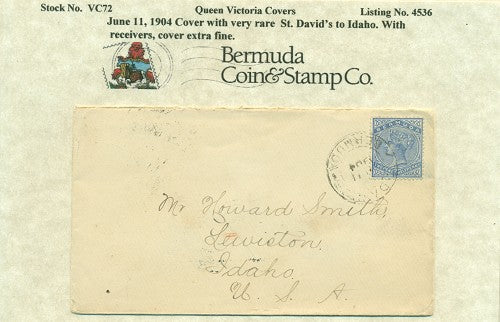 Stock No. VC72 Queen Victoria Covers Listing No. 4536
June 11, 1904 Cover with very rare St. David's to Idaho. With
receivers, cover extra fine.
Bermuda
Coin&Stamp Co.
BERMUDA
Mr Howard Smith,
Lewiston
Idaho
U. S. A.